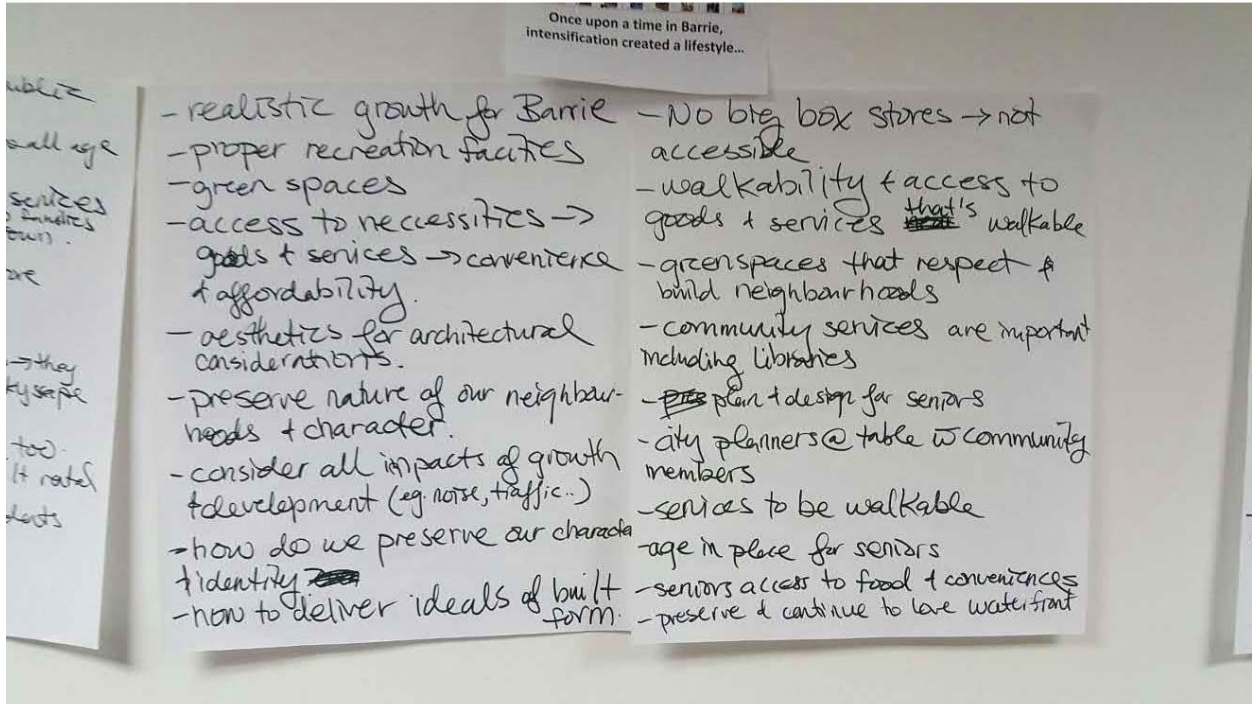 Once upon a time in Barrie,
intensification created a lifestyle...
ublic
all age
services
families
town.
ore
→ they
too.
- realistic growth for Barrie
- proper recreation facities
- green spaces
- access to neccessities →
goods + services → convenience
+ affordability.
- aesthetics for architectural
considerations.
- preserve nature of our neighbour-
hoods + character.
- consider all impacts of growth
+ development (eg. noise, traffic..)
- how do we preserve our character
+ identity
- how to deliver ideals of built
form.
- No big box stores → not
accessible
- walkability + access to
goods + services that's walkable
- greenspaces that respect &
build neighbourhoods
- community services are important
including libraries
- plan + design for seniors
- city planners @ table w community
members
- services to be walkable
- age in place for seniors
- seniors access to food + conveniences
- preserve & continue to love waterfront